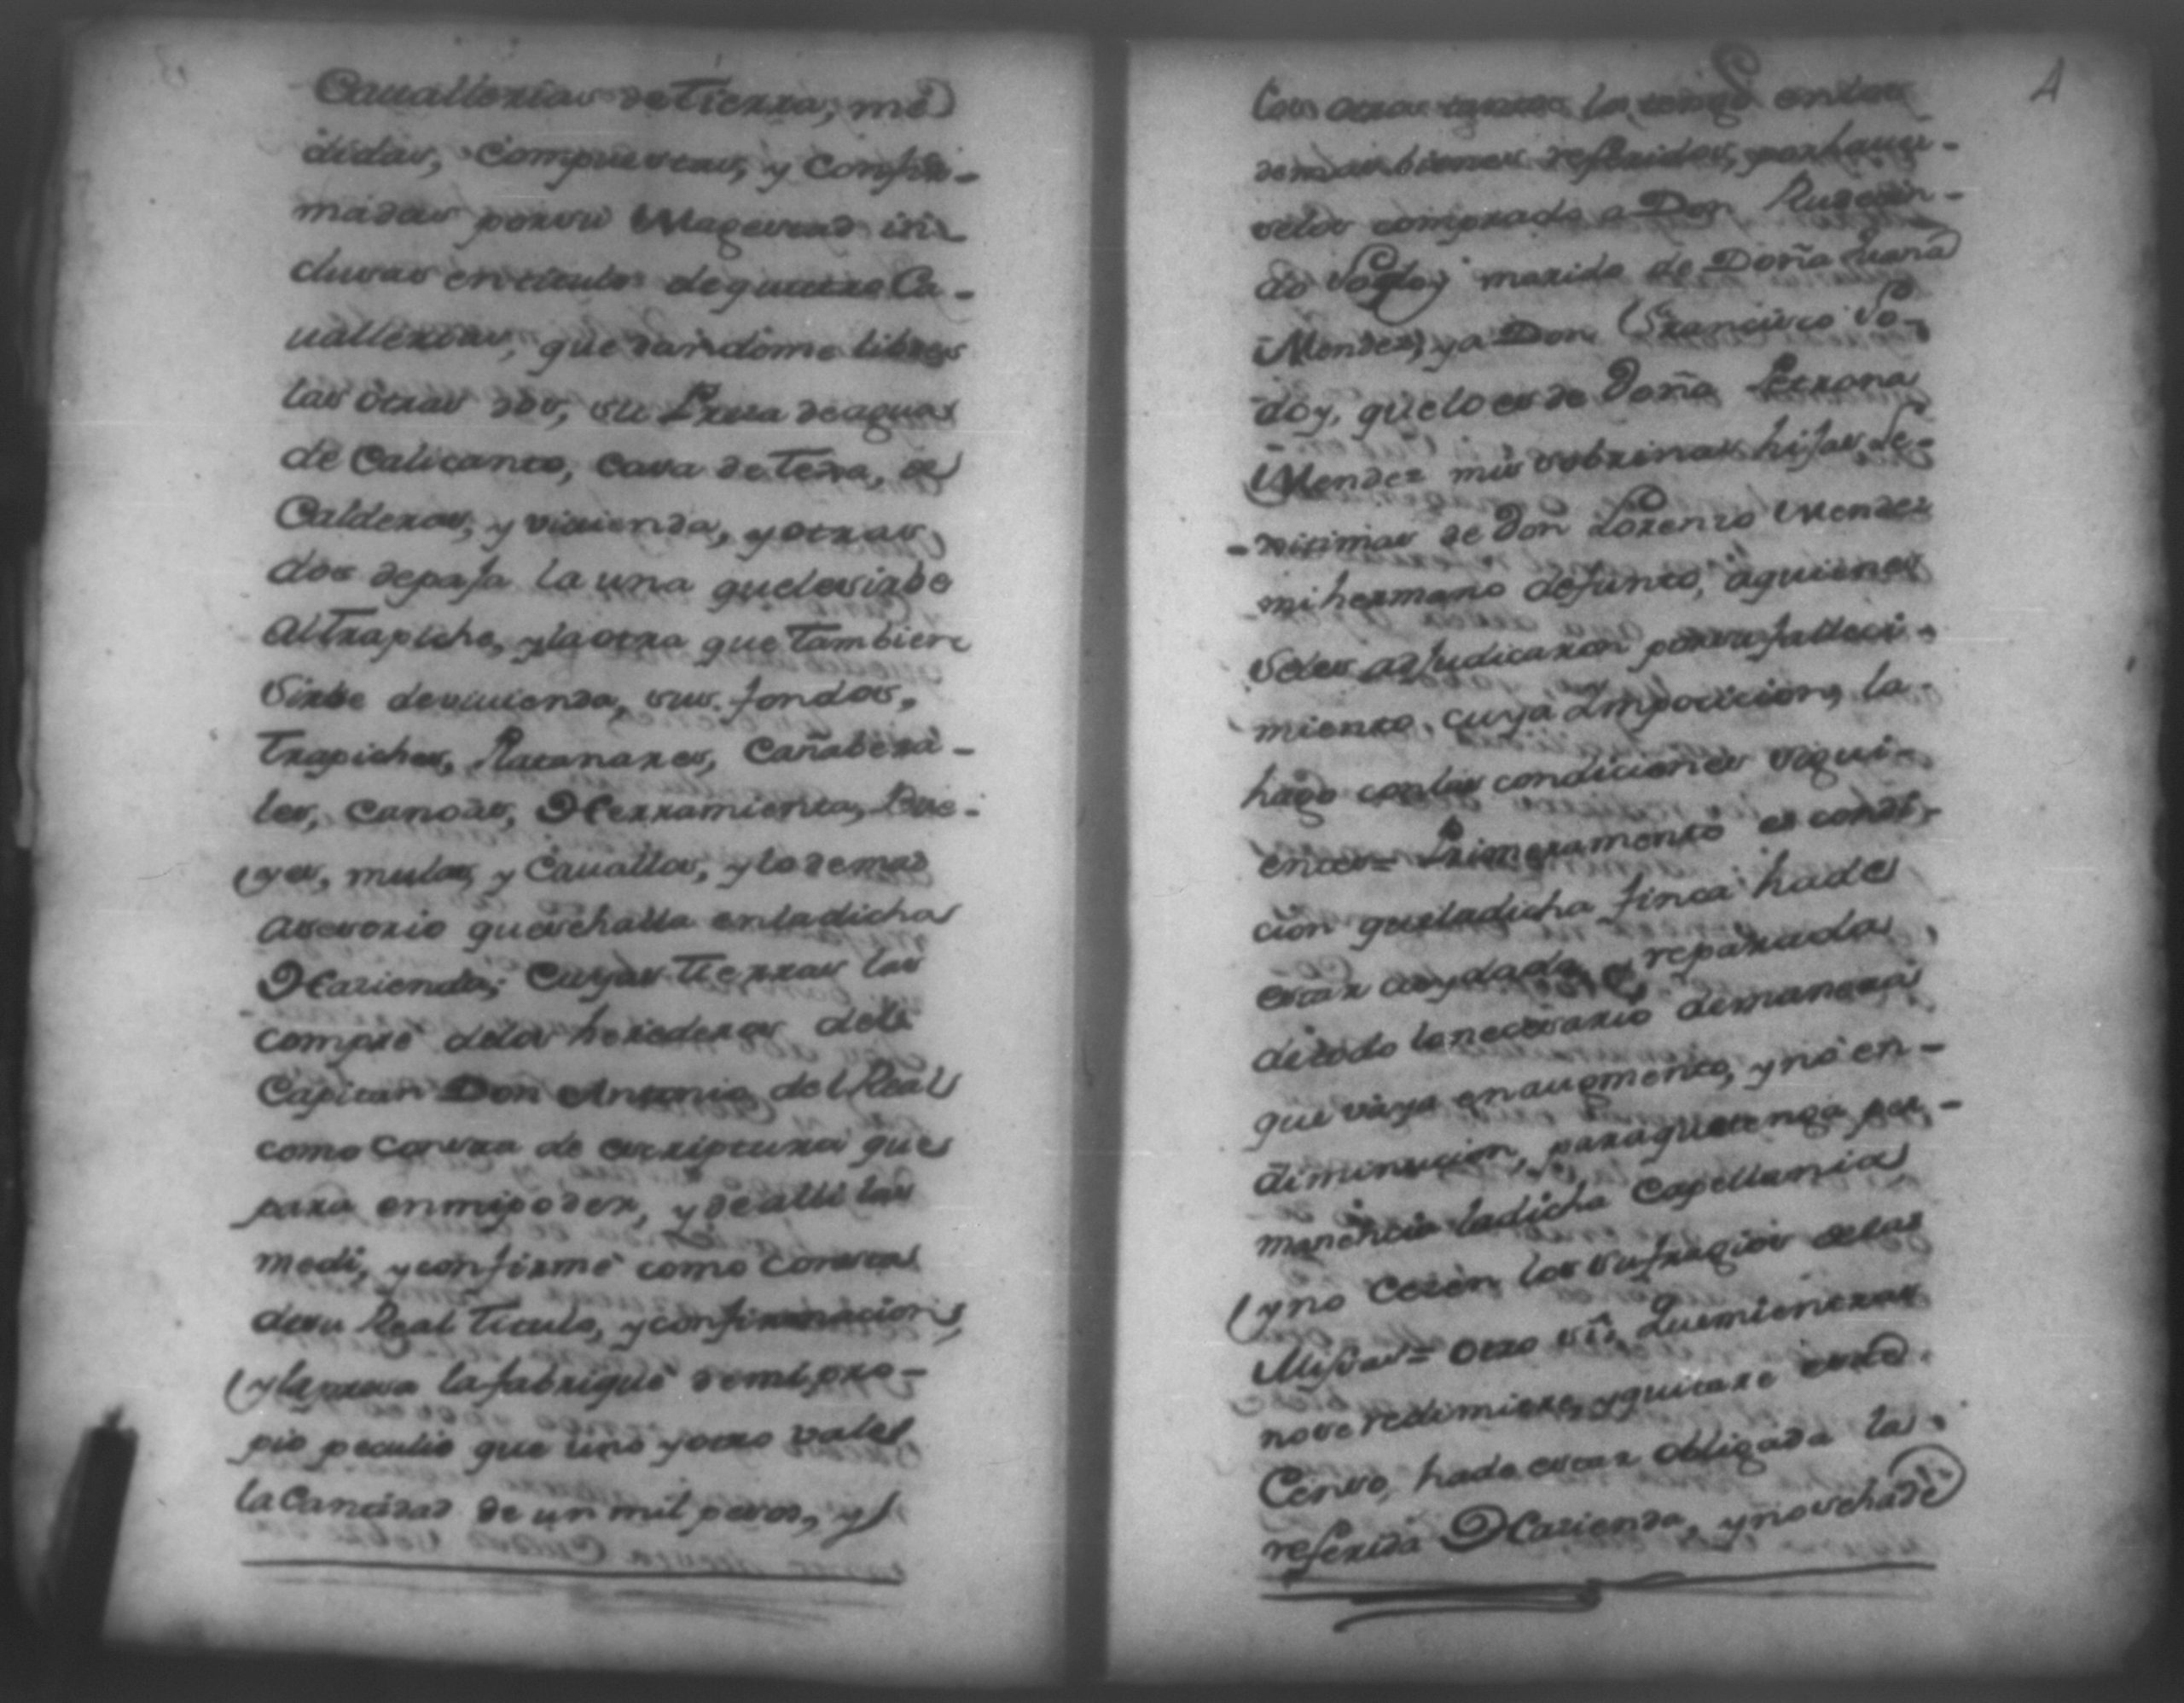 Cauallerias de Tierra, me
didas, compuestas, y Confir-
madas por su Magestad in-
clusas en titulo de quatro Ca-
uallerias, quedandome libres
las otras dos, su Presa de aguas
de Calicanto, casa de Teja, de
Calderas, y viuienda, y otras
dos de paja la una que le sirbe
al Trapiche, y la otra que tambien
Sirbe de viuienda, sus fondos,
Trapiches, Platanares, Cañabera-
les, canoas, Herramienta, Bue-
yes, mulas, y Cauallos, y lo demas
acesorio que se halla en la dicha
Hacienda; Cuyas Tierras las
compré de los herederos del
Capitan Don Antonio del Real
como consta de escriptura que
para en mi poder, y de alli las
medi, y confirmé como consta
de su Real Titulo, y confirmacion,
y la presa la fabriqué de mi pro-
pio peculio que uno y otro vale
la Cantidad de un mil pesos, y
4
las otras la tengo en los
demas bienes referidos, por hauer-
selos comprado a Don Rudecin-
do Godoy marido de Doña Juana
Mendez, y a Don Francisco Go-
doy, que lo es de Doña Petrona
Mendez mis sobrinas hijas Le-
-xitimas de Don Lorenzo Mendez
mi hermano defunto, a quienes
se les adjudicaron por su falleci-
miento, cuya Imposicion, la
hago con las condiciones sigui-
entes = Primeramente es condi-
cion que la dicha finca ha de
estar cuydada, y reparada
de todo lo necesario de manera
que vaya en augmento, y no en
diminucion, para que tenga per-
manencia la dicha Capellania
y no cesen los sufragios de las
Missas = Otro si, Que mientras
no se redimiere, y quitare este
Censo, ha de estar obligada la
referida Hacienda, y no se ha de